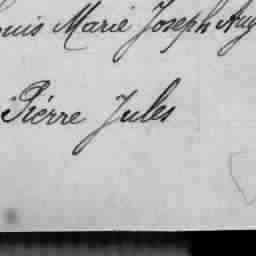 Louis Marie Joseph Aug
Pierre Jules